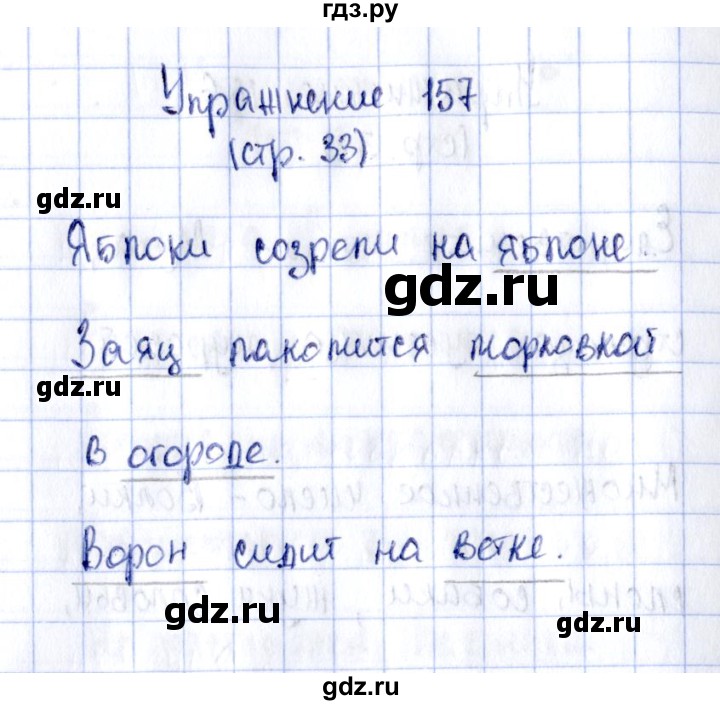 гдз.ру
Упражнение 157
(стр. 33)
gdz.ru
Яблоки созрели на яблоне.
gdz.ru
Заяц лакомится морковкой
gdz.ru
в огороде.
gdz.ru
Ворон сидит на ветке.
gdz.ru
gdz.ru
gdz.ru